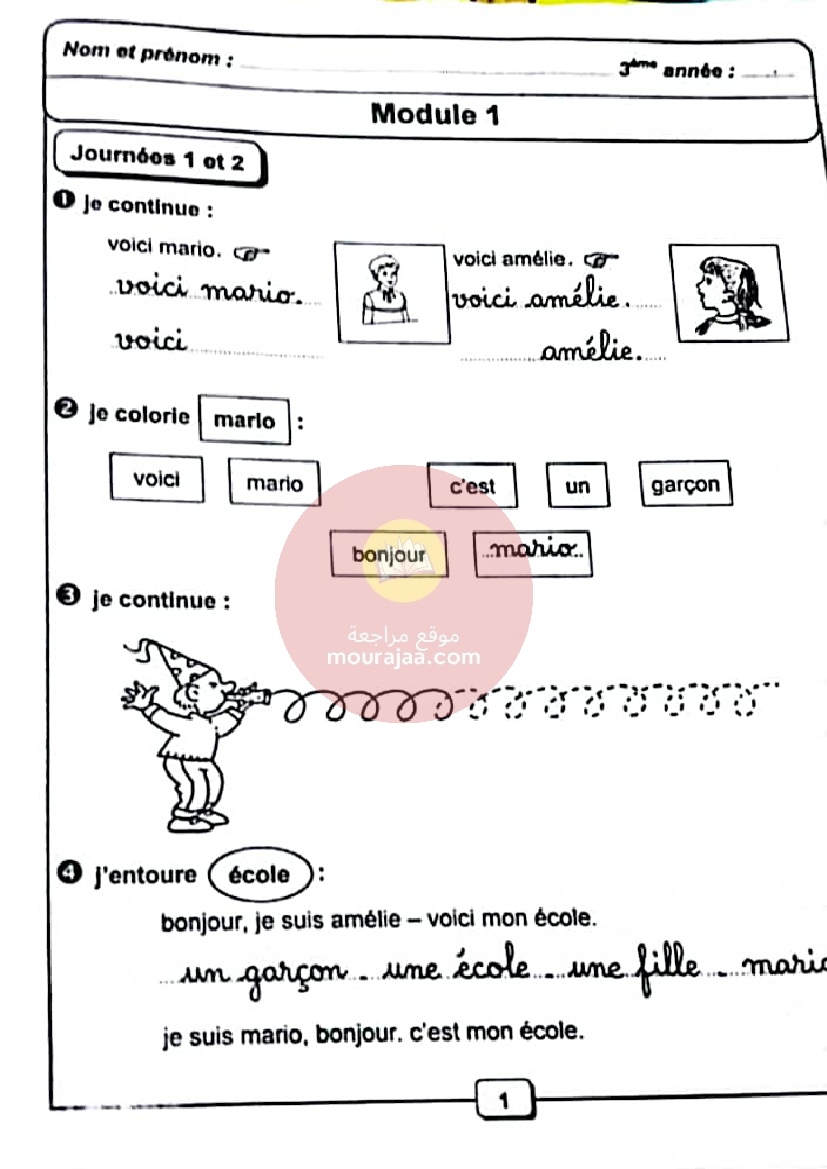 Nom et prénom : 3ème année :
Module 1
Journées 1 et 2
❶ je continue :
voici mario. voici amélie.
voici mario. voici amélie.
voici amélie.
❷ je colorie mario :
voici mario c'est un garçon
bonjour mario
❸ je continue :
موقع مراجعة
mourajaa.com
❹ j'entoure école :
bonjour, je suis amélie – voici mon école.
un garçon - une école - une fille - mario
je suis mario, bonjour. c'est mon école.
1